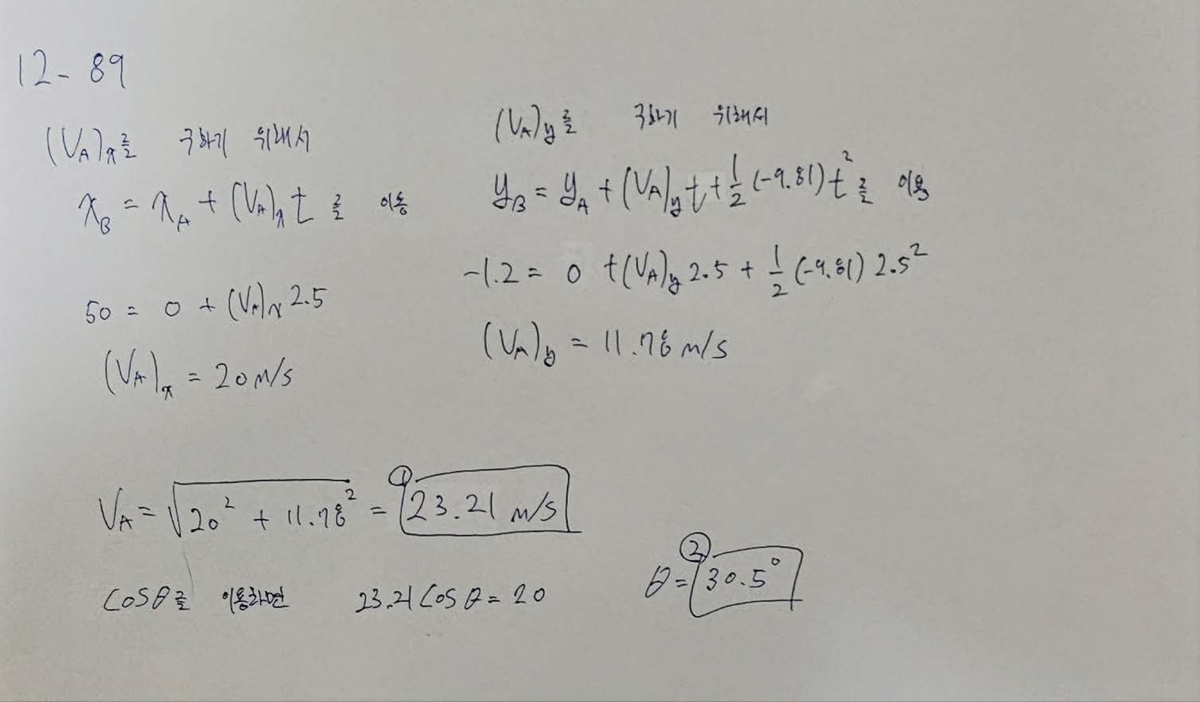 12-89
(VA)x를 구하기 위해서
xB = xA + (VA)x t 를 이용
50 = 0 + (VA)x 2.5
(VA)x = 20 m/s
(VA)y를 구하기 위해서
yB = yA + (VA)y t + 1/2 (-9.81) t² 를 이용
-1.2 = 0 + (VA)y 2.5 + 1/2 (-9.81) 2.5²
(VA)y = 11.78 m/s
VA = √(20² + 11.78²) = ① 23.21 m/s
cosθ를 이용하면 23.21 cos θ = 20 θ = ② 30.5°